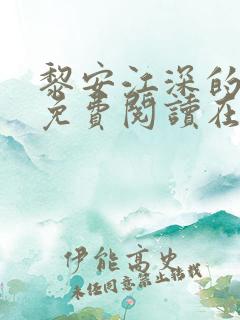 黎安江深的
免費閱讀在
伊能高史
未经同意禁止转载